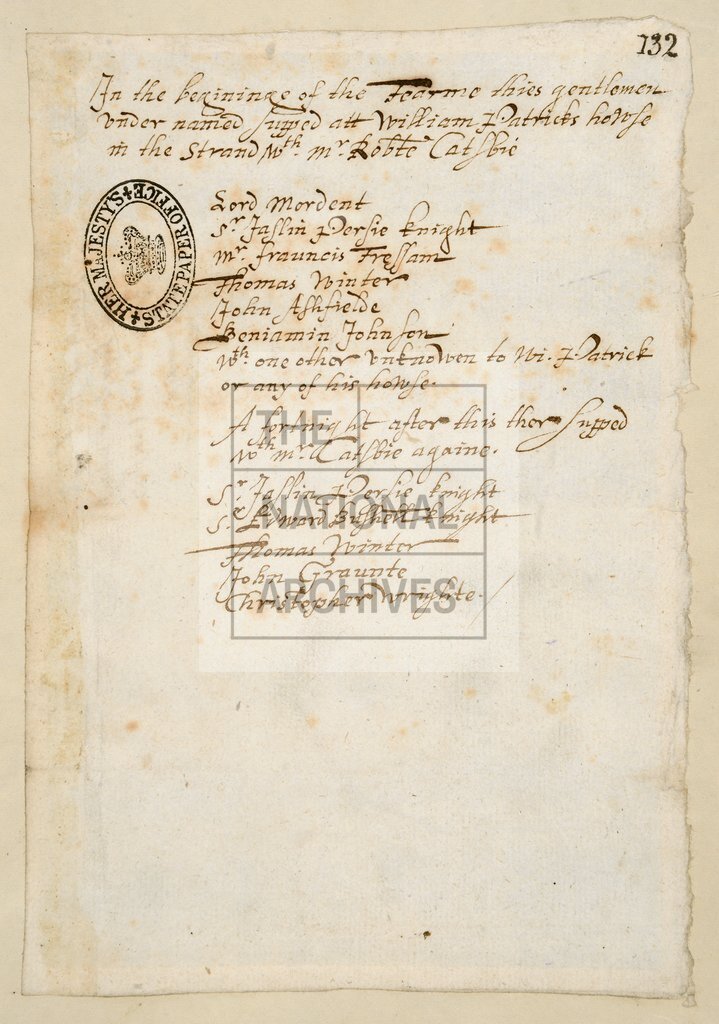 132
In the begininge of the Tearme thies gentlemen
vnder named supped att William Patricks howse
in the Strand wth. mr. Robte Catsbie
HER MAJESTY'S STATE PAPER OFFICE
Lord Mordent
Sr. Jaslin Persie knight
mr. frauncis Tressam
Thomas Winter
John Ashfielde
Beniamin Johnson
wth. one other vnknowen to Wi. Patrick
or any of his howse.
A fortnight after this ther supped
wth mr. Catsbie againe.
Sr. Jaslin Persie knight
Sr Edward Bushell knight
Thomas Winter
John Graunte
Christopher Wrighte.
THE
NATIONAL
ARCHIVES